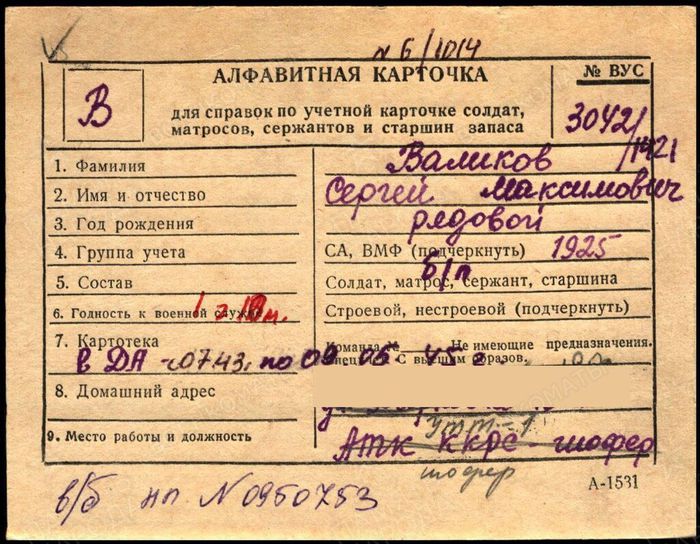 N 6/1014
АЛФАВИТНАЯ КАРТОЧКА
№ ВУС
В
для справок по учетной карточке солдат,
матросов, сержантов и старшин запаса
3042/1421
1. Фамилия
Валиков
2. Имя и отчество
Сергей Максимович
рядовой
3. Год рождения
4. Группа учета
СА, ВМФ (подчеркнуть) 1925
б/п
5. Состав
Солдат, матрос, сержант, старшина
6. Годность к военной службе
Строевой, нестроевой (подчеркнуть)
7. Картотека
Команда № Не имеющие предназначения.
С высшим образов.
в ДА-0743 по 09 05 45 г.
8. Домашний адрес
9. Место работы и должность
АТК ККРС - шофер
шофер
в/б нп. N 0950753
А-1531